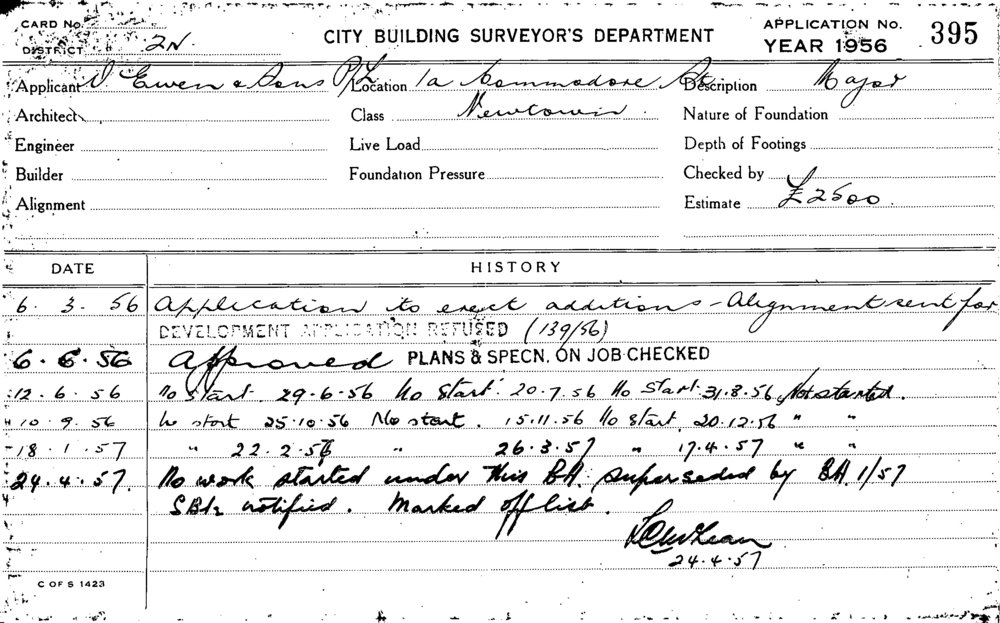 CARD No.
DISTRICT 2N.
CITY BUILDING SURVEYOR'S DEPARTMENT
APPLICATION No. 395
YEAR 1956
Applicant D Ewen & Sons P/L Location 1a Commodore St Description Major
Architect Class Newtown Nature of Foundation
Engineer Live Load Depth of Footings
Builder Foundation Pressure Checked by
Alignment Estimate £2500
DATE HISTORY
6. 3. 56 Application to erect additions - Alignment sent for
DEVELOPMENT APPLICATION REFUSED (139/56)
6. 6. 56 Approved PLANS & SPECN. ON JOB CHECKED
12. 6. 56 No start. 29.6.56 No start. 20.7.56 No start. 31.8.56 Not started.
10. 9. 56 No start 25.10.56 No start. 15.11.56 No start, 20.12.56 " "
18. 1. 57 " 22.2.56 " 26.3.57 " 17.4.57 " "
24. 4. 57. No work started under this BA. superseded by BA. 1/57
notified. Marked off list.
24.4.57
C OF S 1423